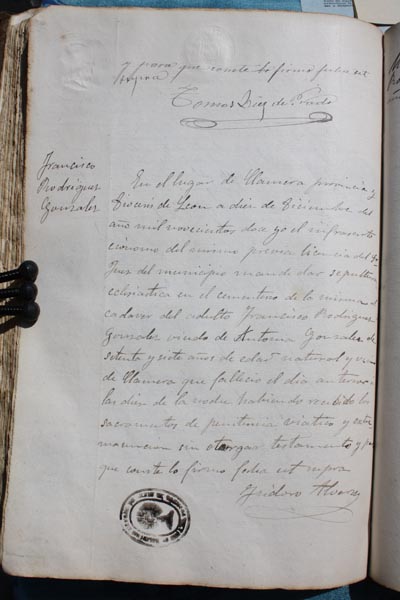 y para que conste lo firmo fecha ut
supra
Tomas Diez de Prado
Francisco
Rodriguez
Gonzalez
En el lugar de Llamera provincia y
Diocesis de Leon a diez de Diciembre del
año mil novecientos doce yo el infrascrito
economo del mismo previa licencia del Sr
Juez del municipio mande dar sepultura
eclesiastica en el cementerio de la misma al
cadaver del adulto Francisco Rodriguez
Gonzalez viudo de Antonia Gonzalez de
setenta y siete años de edad natural y
de Llamera que fallecio el dia anterior a
las diez de la noche habiendo recibido los
sacramentos de penitencia viatico y extre
maunción sin otorgar testamento y para
que conste lo firmo fecha ut supra
Isidoro Alvarez